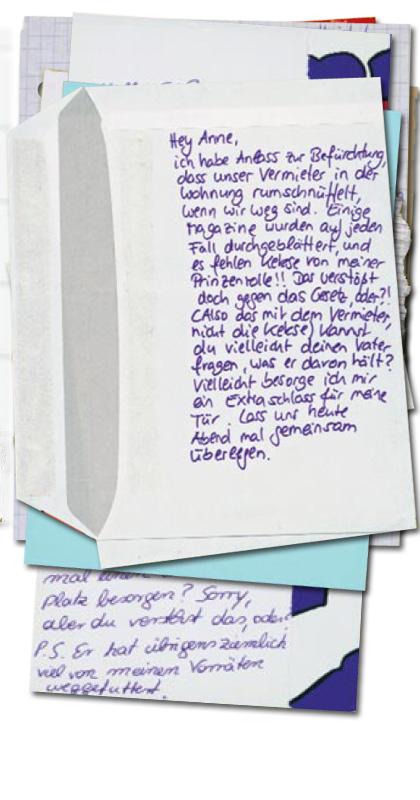 Hey Anne,
ich habe Anlass zur Befürchtung,
dass unser Vermieter in der
Wohnung rumschnüffelt,
wenn wir weg sind. Einige
Magazine wurden auf jeden
Fall durchgeblättert, und
es fehlen Kekse von meiner
Prinzenrolle!! Das verstößt
doch gegen das Gesetz, oder?!
(Also das mit dem Vermieter,
nicht die Kekse) Kannst
du vielleicht deinen Vater
fragen, was er davon hält?
Vielleicht besorge ich mir
ein Extraschloss für meine
Tür. Lass uns heute
Abend mal gemeinsam
überlegen.
mal einen
platz besorgen? Sorry,
aber du verstehst das, oder?
P.S. Er hat übrigens ziemlich
viel von meinen Vorräten
weggefuttert.